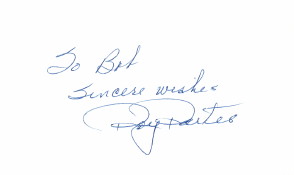 To Bob
Sincere wishes
Roy Partee